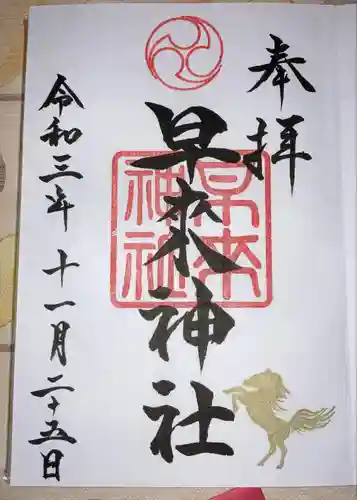 奉拝
早来神社
早来神社
令和三年十一月二十五日